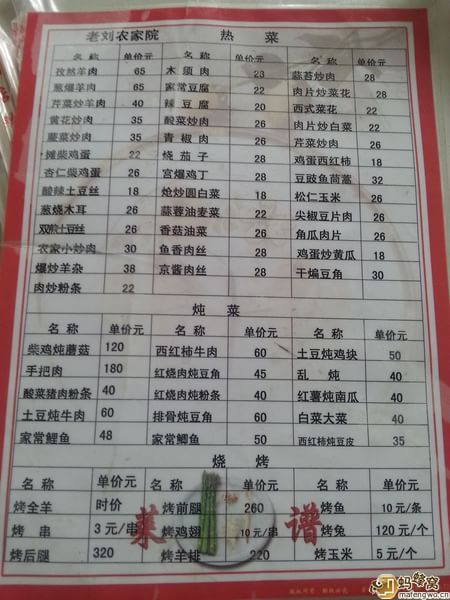 老刘农家院 热菜
名称 单价元 名称 单价元 名称 单价元
孜然羊肉 65 木须肉 23 蒜苔炒肉 28
葱爆羊肉 65 家常豆腐 22 肉片炒菜花 28
芹菜炒羊肉 40 辣豆腐 20 西式菜花 22
黄花炒肉 35 酸菜炒肉 26 肉片炒白菜 22
蕨菜炒肉 35 青椒肉 26 芹菜炒肉 26
摊柴鸡蛋 22 烧茄子 28 鸡蛋西红柿 18
杏仁柴鸡蛋 26 宫爆鸡丁 28 豆豉鱼茼蒿 32
酸辣土豆丝 18 炝炒圆白菜 18 松仁玉米 26
葱烧木耳 22 蒜蓉油麦菜 22 尖椒豆片肉 26
双椒土豆丝 26 香菇油菜 26 角瓜肉片 26
农家小炒肉 30 鱼香肉丝 28 鸡蛋炒黄瓜 18
爆炒羊杂 38 京酱肉丝 28 干煸豆角 30
肉炒粉条 22
炖菜
名称 单价元 名称 单价元 名称 单价元
柴鸡炖蘑菇 120 西红柿牛肉 60 土豆炖鸡块 50
手把肉 180 红烧肉炖豆角 45 乱炖 40
酸菜猪肉粉条 40 红烧肉炖粉条 40 红薯炖南瓜 40
土豆炖牛肉 60 排骨炖豆角 60 白菜大菜 40
家常鲤鱼 48 家常鲫鱼 50 西红柿炖豆皮 35
烧烤
名称 单价元 名称 单价元 名称 单价元
烤全羊 时价 烤前腿 260 烤鱼 10元/条
烤串 3元/串 烤鸡翅 10元/串 烤兔 120元/个
烤后腿 320 烤羊排 220 烤玉米 5元/个
菜谱
蚂蜂窝
mafengwo.cn